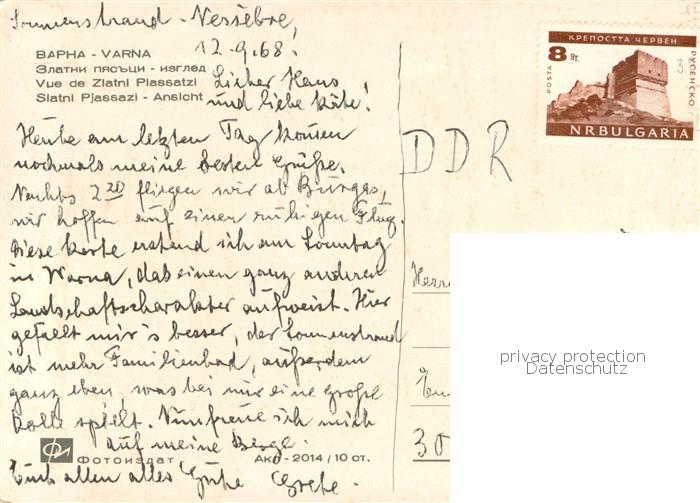 Sonnenstrand - Nessèbre,
12.9.68.
ВАРНА - VARNA
Златни пясъци - изглед
Vue de Zlatni Piassatzi
Slatni Pjassazi - Ansicht
Lieber Hans
und liebe Käte!
Heute am letzten Tag kommen
nochmals meine besten Grüße.
Nachts 2 20 fliegen wir ab Burgas,
wir hoffen auf einen ruhigen Flug.
Diese Karte erstand ich am Sonntag
in Warna, das einen ganz anderen
Landschaftscharakter aufweist. Hier
gefällt mir's besser, der Sonnenstrand
ist mehr Familienbad, außerdem
ganz eben, was bei mir eine große
Rolle spielt. Nun freue ich mich
auf meine Berge.
Euch allen alles Gute Grete.
ФОТОИЗДАТ
АКО - 2014 / 10 ст.
КРЕПОСТТА ЧЕРВЕН
8 ст.
POSTA
РУСЕНСКО
NRBULGARIA
DDR
Herrn
30
privacy protection
Datenschutz